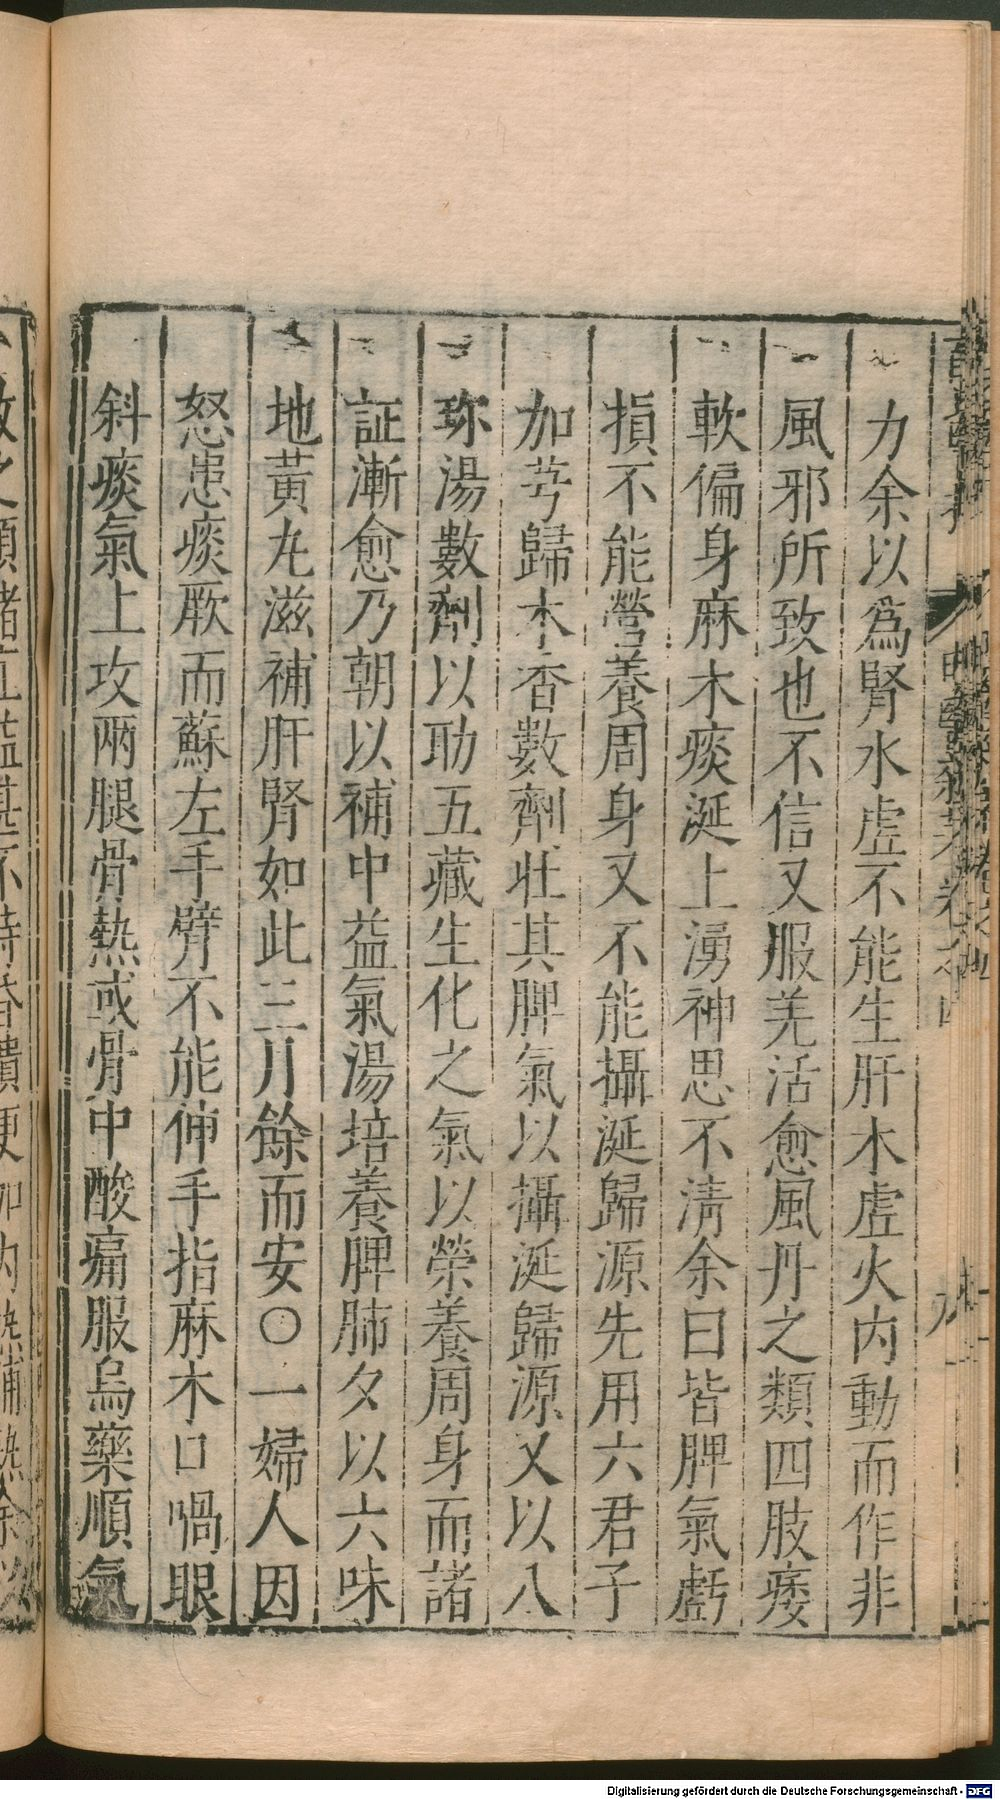 力余以爲腎水虛不能生肝木虛火内動而作非
風邪所致也不信又服羌活愈風丹之類四肢痿
軟偏身麻木痰涎上湧神思不清余曰皆脾氣虧
損不能營養周身又不能攝涎歸源先用六君子
加芎歸木香數劑壯其脾氣以攝涎歸源又以八
珎湯數劑以助五藏生化之氣以榮養周身而諸
証漸愈乃朝以補中益氣湯培養脾肺夕以六味
地黃丸滋補肝腎如此三月餘而安〇一婦人因
怒患痰厥而蘇左手臂不能伸手指麻木口喎眼
斜痰氣上攻兩腿骨熱或骨中酸痛服烏藥順氣
Digitalisierung gefördert durch die Deutsche Forschungsgemeinschaft - DFG